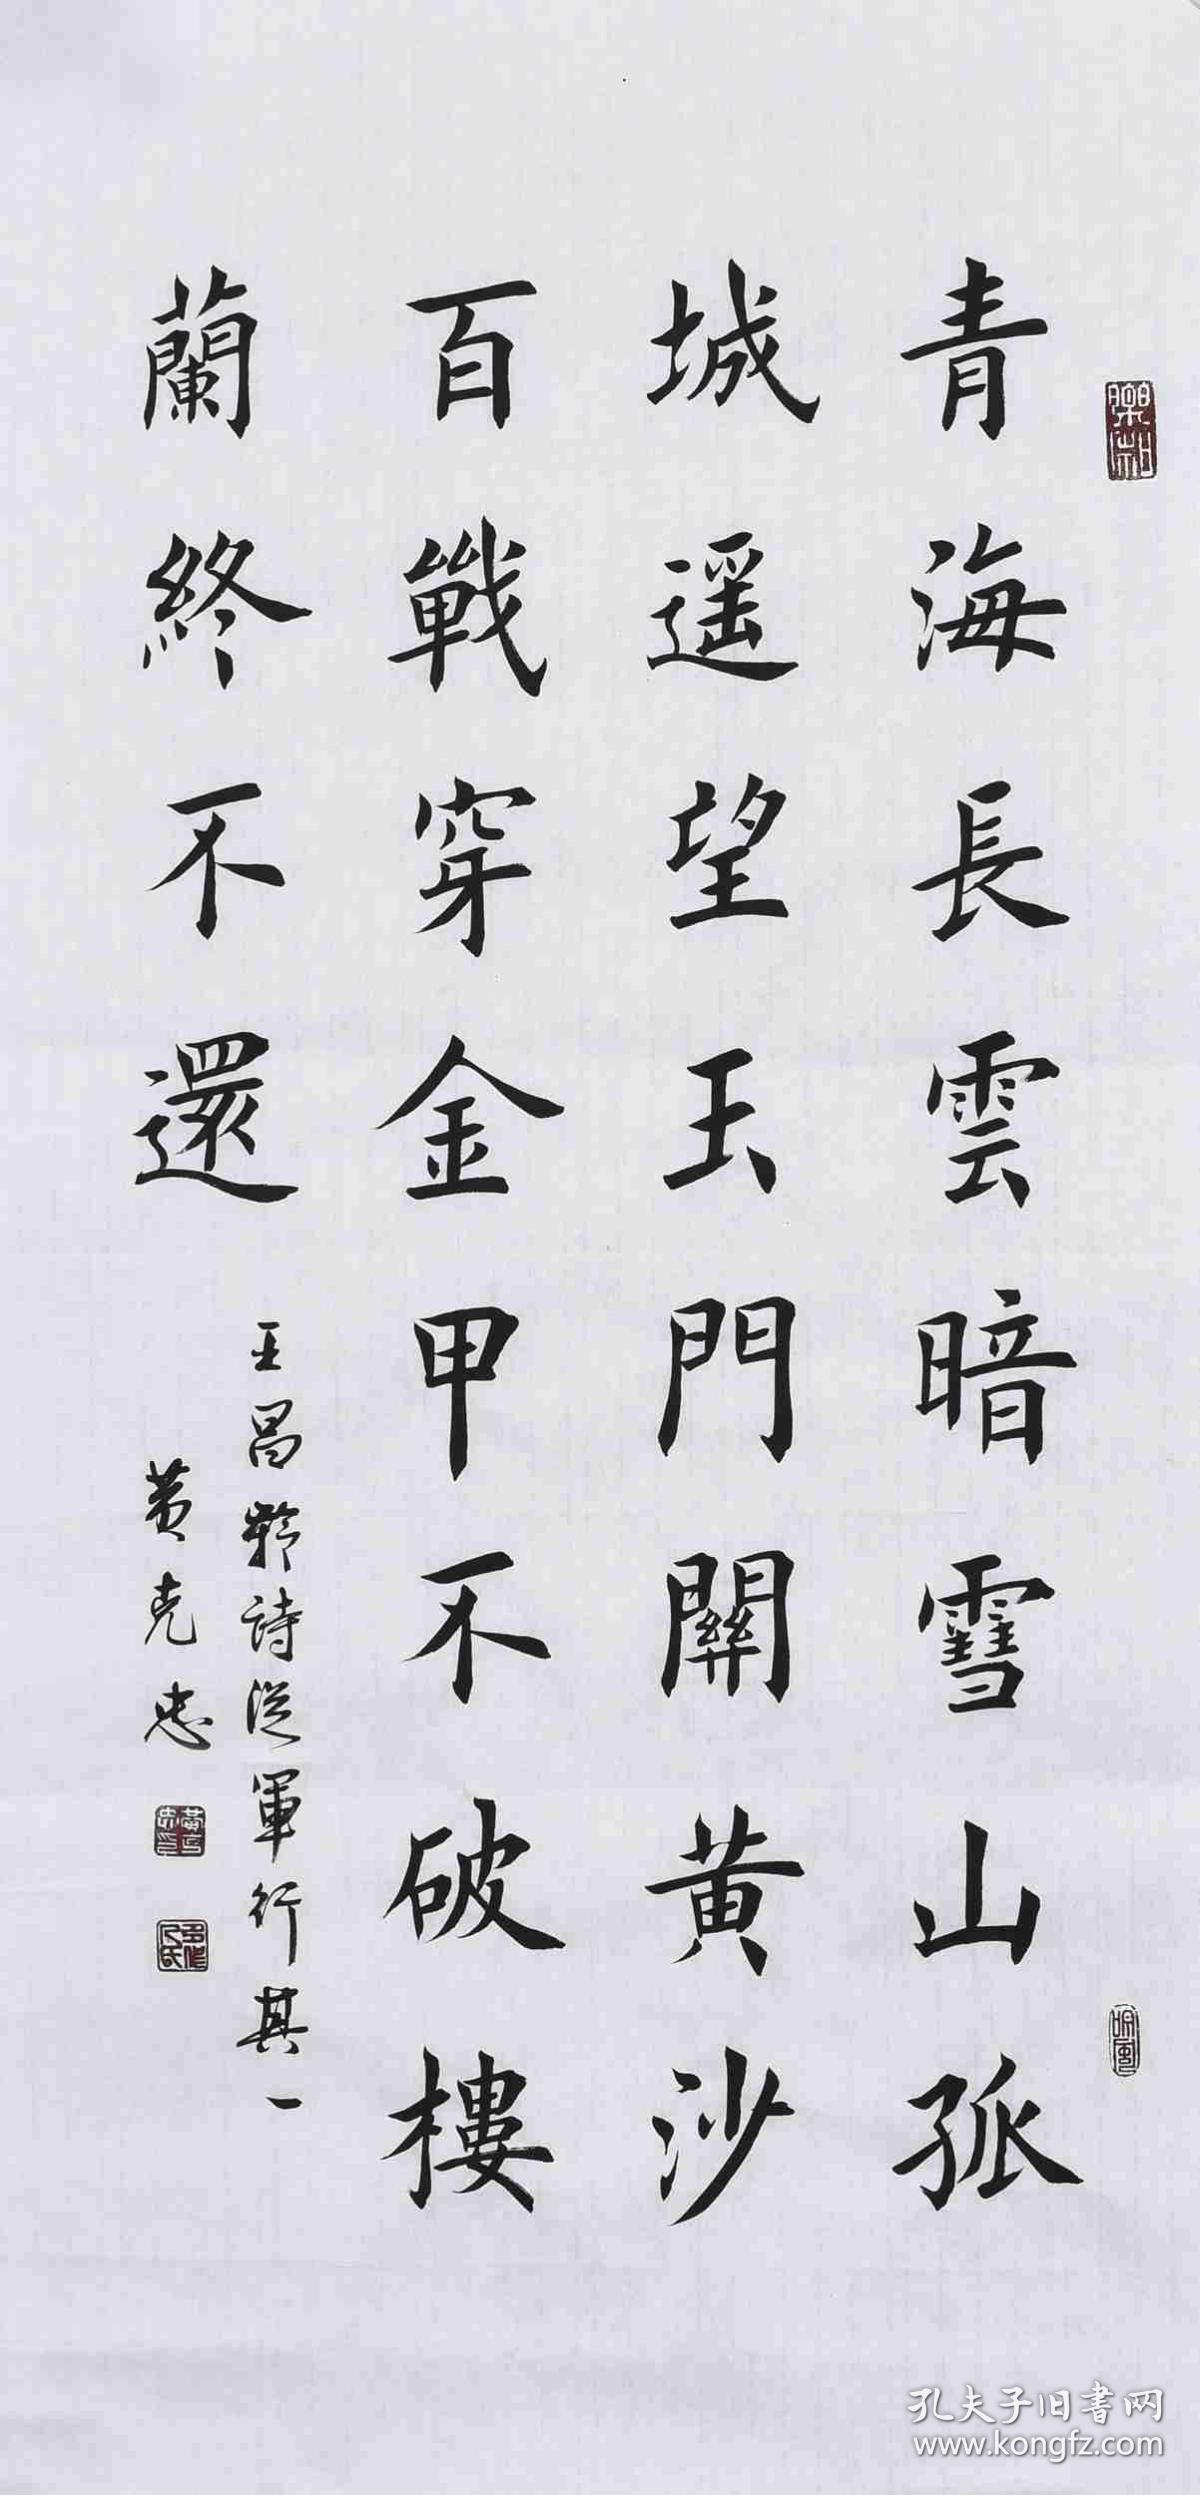 青海長雲暗雪山孤
城遥望玉門關黄沙
百戰穿金甲不破樓
蘭終不還
王昌齡詩從軍行其一
黄克忠
孔夫子旧書网
www.kongfz.com